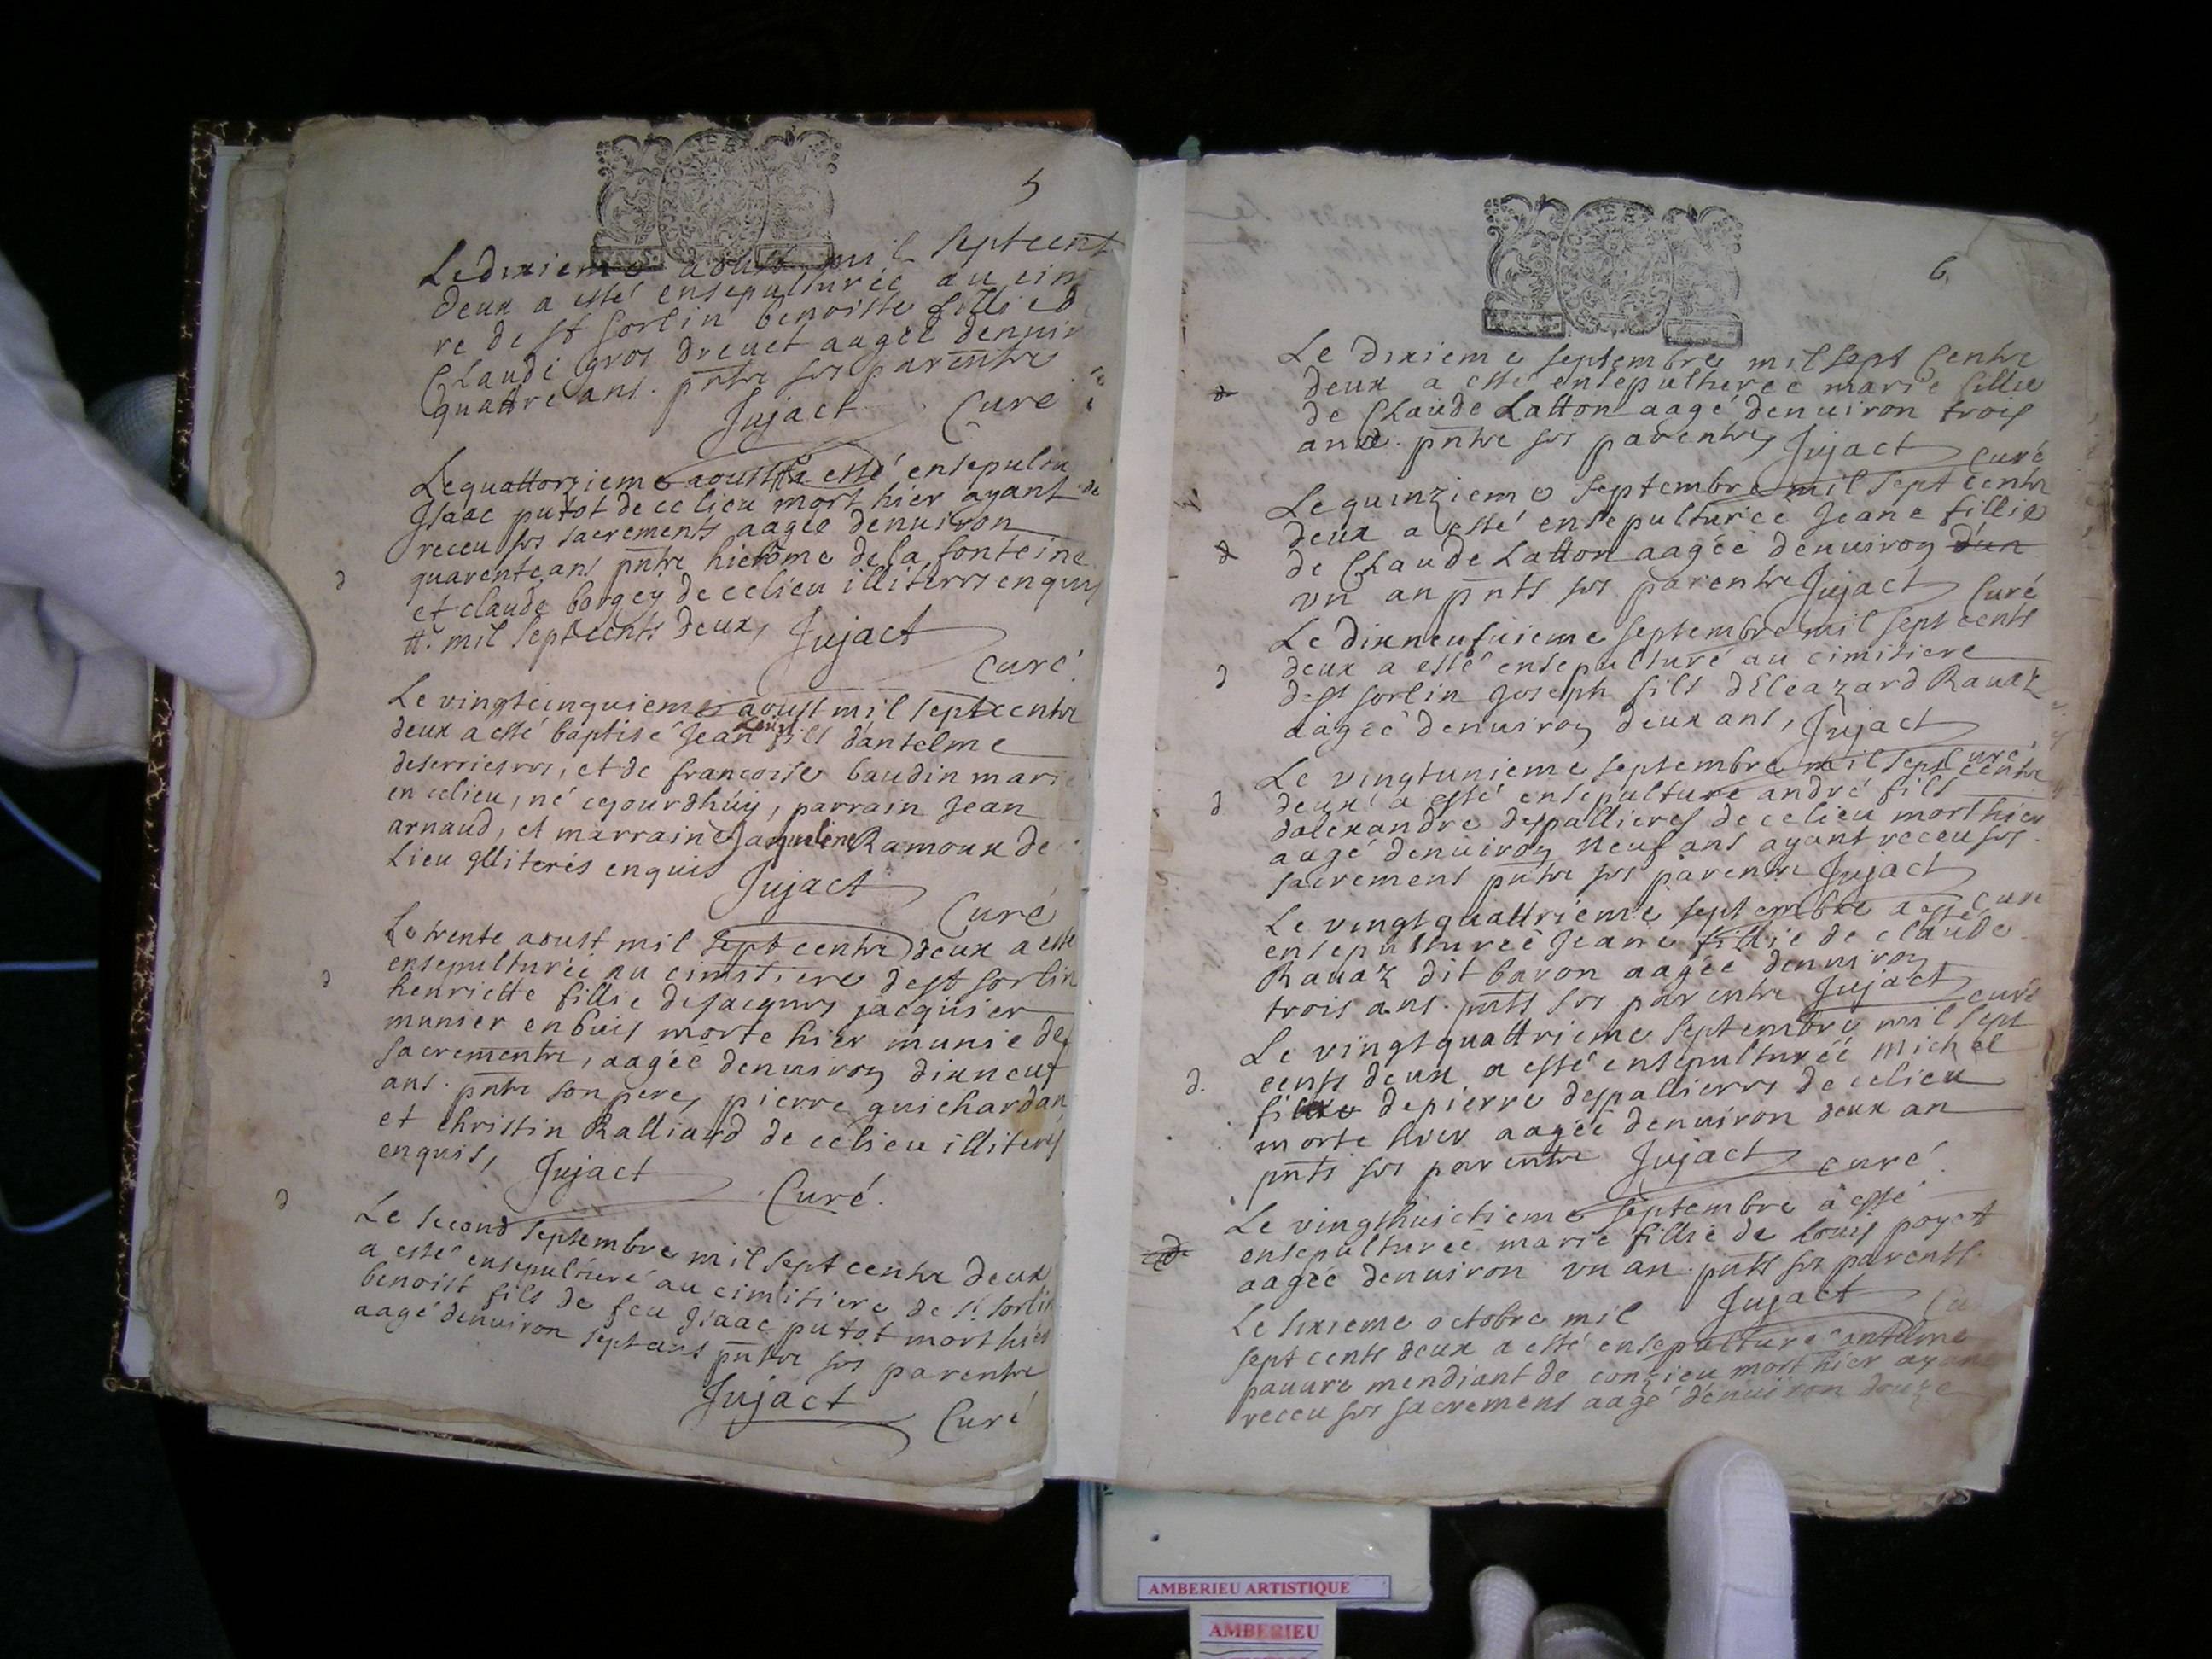 5
Le dixieme aoust mil septcent
deux a esté ensepulturée au cim
re de st sorlin benoiste fillie d
Claude gros drevet aagée denvir
quattre ans. pnts ses parents
Jujact Curé
Le quattorzieme aoust a esté ensepultu
Isaac putot de ce lieu mort hier ayant
receu ses sacrements aagée denuiron
quarente ans pnts hierôme de la fonteine
d
et claude borgey de ce lieu illiterés enquis
mil sept cents deux, Jujact
Curé.
Le vingtcinquieme aoust mil sept cents
deux a esté baptisé Jean fils dantelme
deserrieres, et de francoise baudin marié
en ce lieu, né cejourdhuy, parrain Jean
arnaud, et marraine Jaqueline Ramoux de
Lieu illiterés enquis Jujact
Curé
Le trente aoust mil sept cents deux a esté
ensepulturée au cimitiere de st sorlin
d
henriette fillie de Jacques jacquier
munier en buis morte hier munie des
sacrements, aagée denuiron dixneuf
ans. pnts son pere, pierre guichardan
et christin Ralliard de ce lieu illiterés
enquis, Jujact Curé.
d
Le second septembre mil sept cents deux
a esté ensepulturé au cimitiere de st sorlin
benoist fils de feu Isaac putot mort hier
aagé denuiron sept ans pnts ses parents
Jujact
Curé
6
Le dixieme septembre mil sept Cents
deux a esté ensepulturée marie fillie
d
de Claude Latton aagé denuiron trois
ans. pnts ses parents, Jujact curé
Le quinzieme septembre mil sept cents
deux a esté ensepulturée Jeane fillie
d
de Claude Latton aagée denuiron d'un
un an pnts ses parents Jujact Curé
Le dixneufuieme septembre mil sept cents
deux a esté ensepulturé au cimitiere
d
de st sorlin Joseph fils dEleazard Ravaz
aagée denuiron deux ans, Jujact
curé
Le vingtunieme septembre mil sept cents
deux a esté ensepulturé andré fils
d
dalexandre despallieres de ce lieu mort hier
aagé denuiron neuf ans ayant receu ses
sacremens pnts ses parents Jujact
cure
Le vingtquattrieme septembre a esté
ensepulturée Jeane fillie de claude
Ravaz dit baron aagée denuiron
trois ans. pnts ses parents Jujact curé
Le vingtquattrieme septembre mil sept
cents deux a esté ensepulturéé michel
d.
fils de pierre despallieres de ce lieu
morte hier aagée denuiron deux an
pnts ses parents Jujact curé.
Le vingthuictieme septembre a esté
d
ensepulturée marie fillie de louis poyet
aagée denuiron un an. pnts ses parents.
Jujact Cu
Le sixieme octobre mil
sept cents deux a esté ensepulturé antelme
pauure mendiant de conzieu mort hier ayant
receu ses sacremens aagé denuiron douze
AMBERIEU ARTISTIQUE
AMBERIEU